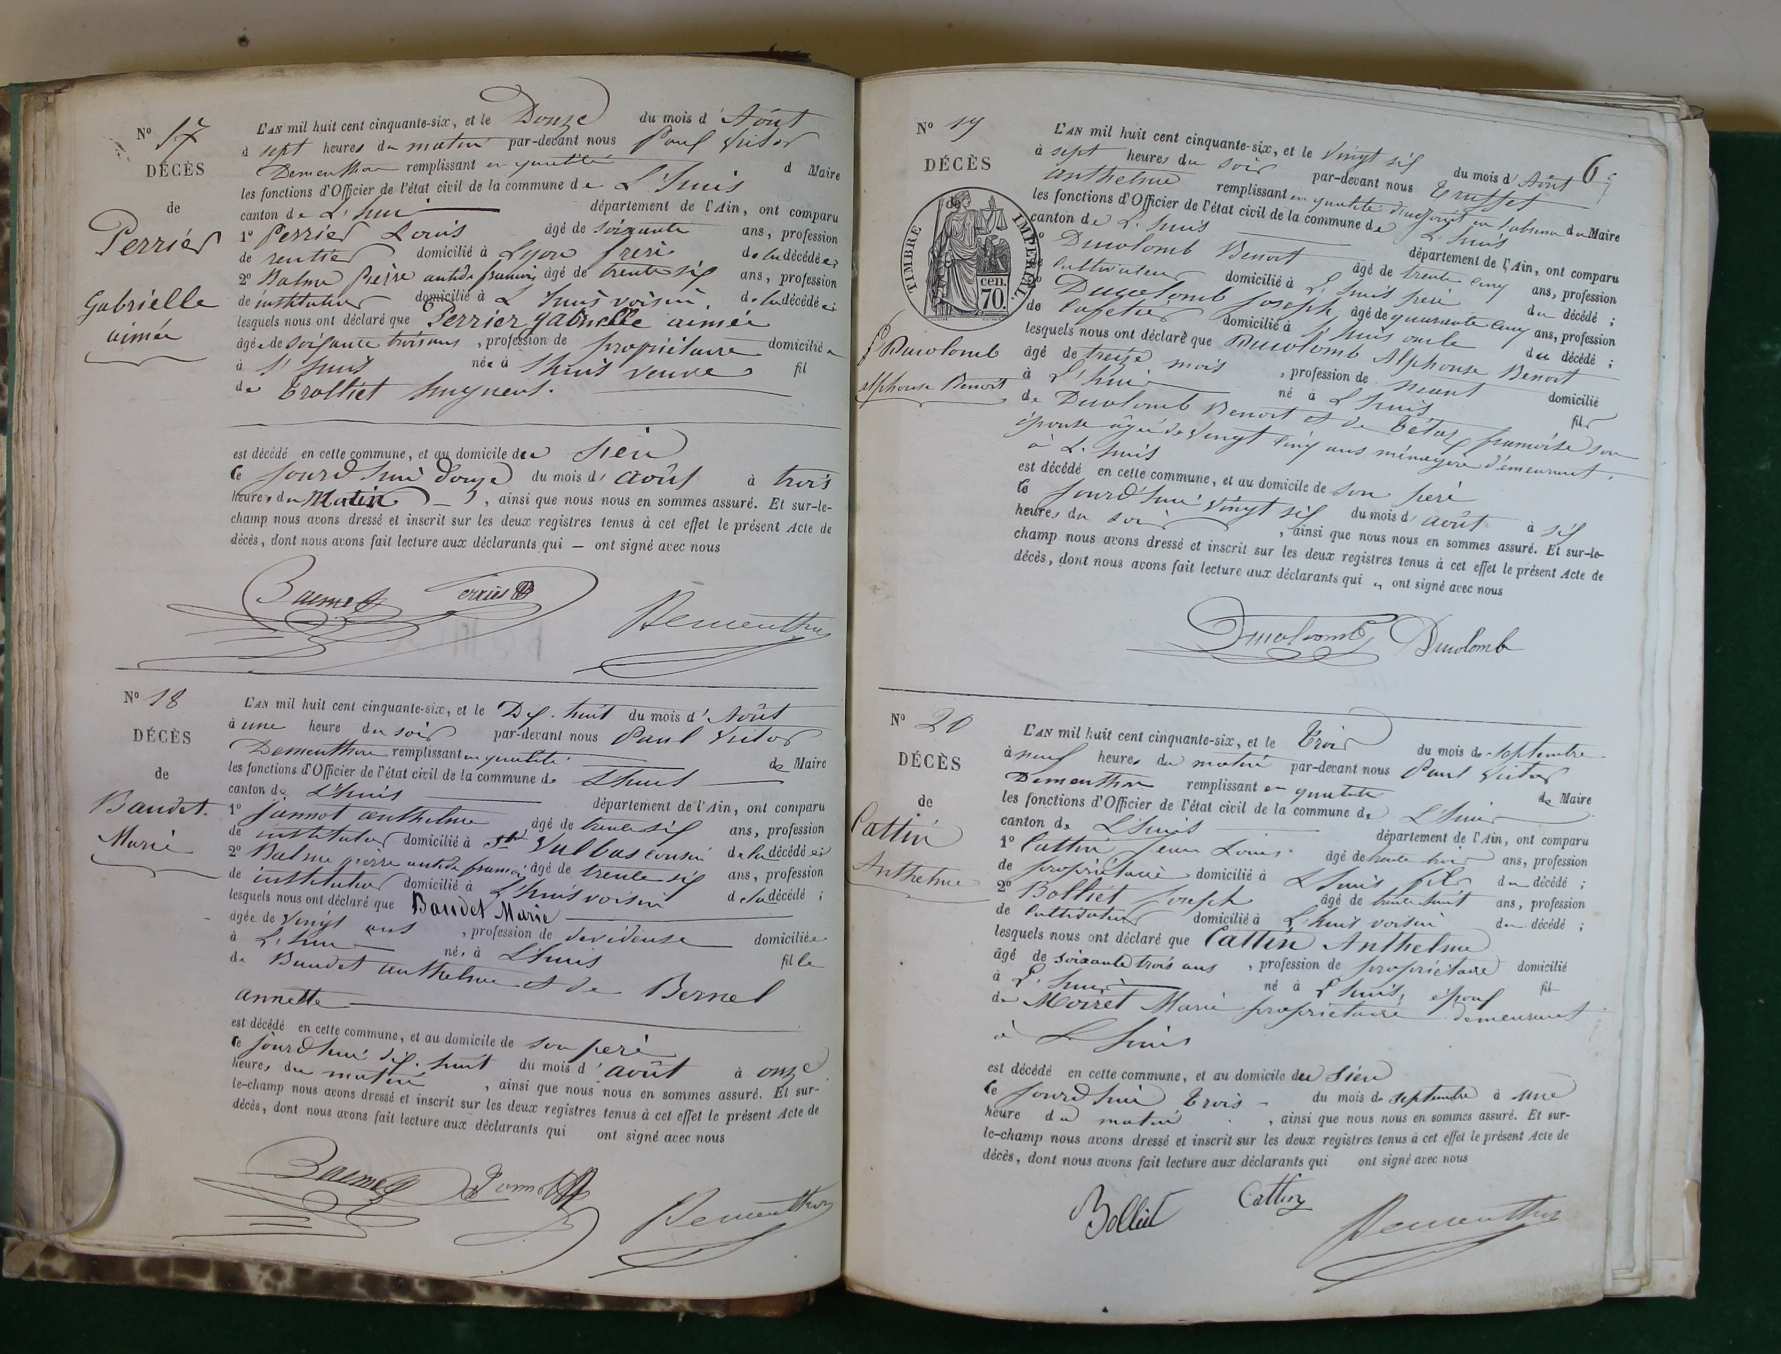 N° 17
DÉCÈS
de
Perrier
Gabrielle
aimée
L'AN mil huit cent cinquante-six, et le Douze du mois d'Août
à sept heures du matin par-devant nous Paul Victor
Dementhon remplissant en qualité d Maire
les fonctions d'Officier de l'état civil de la commune de L'huis
canton de L'huis département de l'Ain, ont comparu
1° Perrier Louis âgé de soixante ans, profession
de rentier domicilié à Lyon frère de la décédée
2° Balme pierre antide françois âgé de trente six ans, profession
de instituteur domicilié à L'huis voisin de la décédée
lesquels nous ont déclaré que Perrier gabrielle aimée
âgée de soixante trois ans, profession de propriétaire domiciliée
à L'huis née à L'huis veuve fil
de Trolliet huguenot.
est décédé en cette commune, et au domicile de sien
ce jourd'hui douze du mois d'août à trois
heures du Matin, ainsi que nous nous en sommes assuré. Et sur-le-
champ nous avons dressé et inscrit sur les deux registres tenus à cet effet le présent Acte de
décès, dont nous avons fait lecture aux déclarants qui — ont signé avec nous
Perrier Dementhon
N° 18
DÉCÈS
de
Baudet
Marie
L'AN mil huit cent cinquante-six, et le Dix-huit du mois d'Août
à une heure du soir par-devant nous Paul Victor
Dementhon remplissant en qualité de Maire
les fonctions d'Officier de l'état civil de la commune de L'huis
canton de L'huis département de l'Ain, ont comparu
1° Jannot anthelme âgé de trente six ans, profession
de instituteur domicilié à St Vulbas cousin de la décédée
2° Balme pierre antide françois âgé de trente six ans, profession
de instituteur domicilié à L'huis voisin de la décédé ;
lesquels nous ont déclaré que Baudet Marie
âgée de vingt ans, profession de devideuse domiciliée
à L'huis née à L'huis fille
de Baudet anthelme et de Bernel
annette
est décédé en cette commune, et au domicile de son père
ce jourd'hui dix-huit du mois d'août à onze
heures du matin, ainsi que nous nous en sommes assuré. Et sur-
le-champ nous avons dressé et inscrit sur les deux registres tenus à cet effet le présent Acte de
décès, dont nous avons fait lecture aux déclarants qui ont signé avec nous
Jannot Dementhon
N° 19
DÉCÈS
TIMBRE IMPÉRIAL
70 cen.
Ducolomb
alphonse Benoit
6
L'AN mil huit cent cinquante-six, et le vingt six du mois d'Août
à sept heures du soir par-devant nous Truffet
anthelme remplissant en qualité d'adjoint en l'absence du Maire
les fonctions d'Officier de l'état civil de la commune de L'huis
canton de L'huis département de l'Ain, ont comparu
1° Ducolomb Benoit âgé de trente cinq ans, profession
de Cultivateur domicilié à L'huis père du décédé ;
2° Ducolomb Joseph âgé de quarante cinq ans, profession
de Cafetier domicilié à L'huis oncle du décédé ;
lesquels nous ont déclaré que Ducolomb Alphonse Benoit
âgé de treize mois, profession de neant domicilié
à L'huis né à L'huis fils
de Ducolomb Benoit et de Tétaz françoise son
épouse âgée de vingt cinq ans ménagère demeurant
à L'huis
est décédé en cette commune, et au domicile de son père
ce jourd'hui vingt six du mois d'août à six
heures du soir, ainsi que nous nous en sommes assuré. Et sur-le-
champ nous avons dressé et inscrit sur les deux registres tenus à cet effet le présent Acte de
décès, dont nous avons fait lecture aux déclarants qui ont signé avec nous
Ducolomb Ducolomb
N° 20
DÉCÈS
de
Cattin
Anthelme
L'AN mil huit cent cinquante-six, et le Trois du mois de septembre
à neuf heures du matin par-devant nous Paul Victor
Dementhon remplissant en qualité de Maire
les fonctions d'Officier de l'état civil de la commune de L'huis
canton de L'huis département de l'Ain, ont comparu
1° Cattin Jean Louis âgé de trente trois ans, profession
de propriétaire domicilié à L'huis fils du décédé ;
2° Bolliet Joseph âgé de trente huit ans, profession
de Cultivateur domicilié à L'huis voisin du décédé ;
lesquels nous ont déclaré que Cattin Anthelme
âgé de soixante trois ans, profession de propriétaire domicilié
à L'huis né à L'huis, époux fil
de Moiret Marie propriétaire demeurant
à L'huis
est décédé en cette commune, et au domicile du sien
ce jourd'hui trois du mois de septembre à une
heure du matin, ainsi que nous nous en sommes assuré. Et sur-
le-champ nous avons dressé et inscrit sur les deux registres tenus à cet effet le présent Acte de
décès, dont nous avons fait lecture aux déclarants qui ont signé avec nous
Bolliet Cattin Dementhon